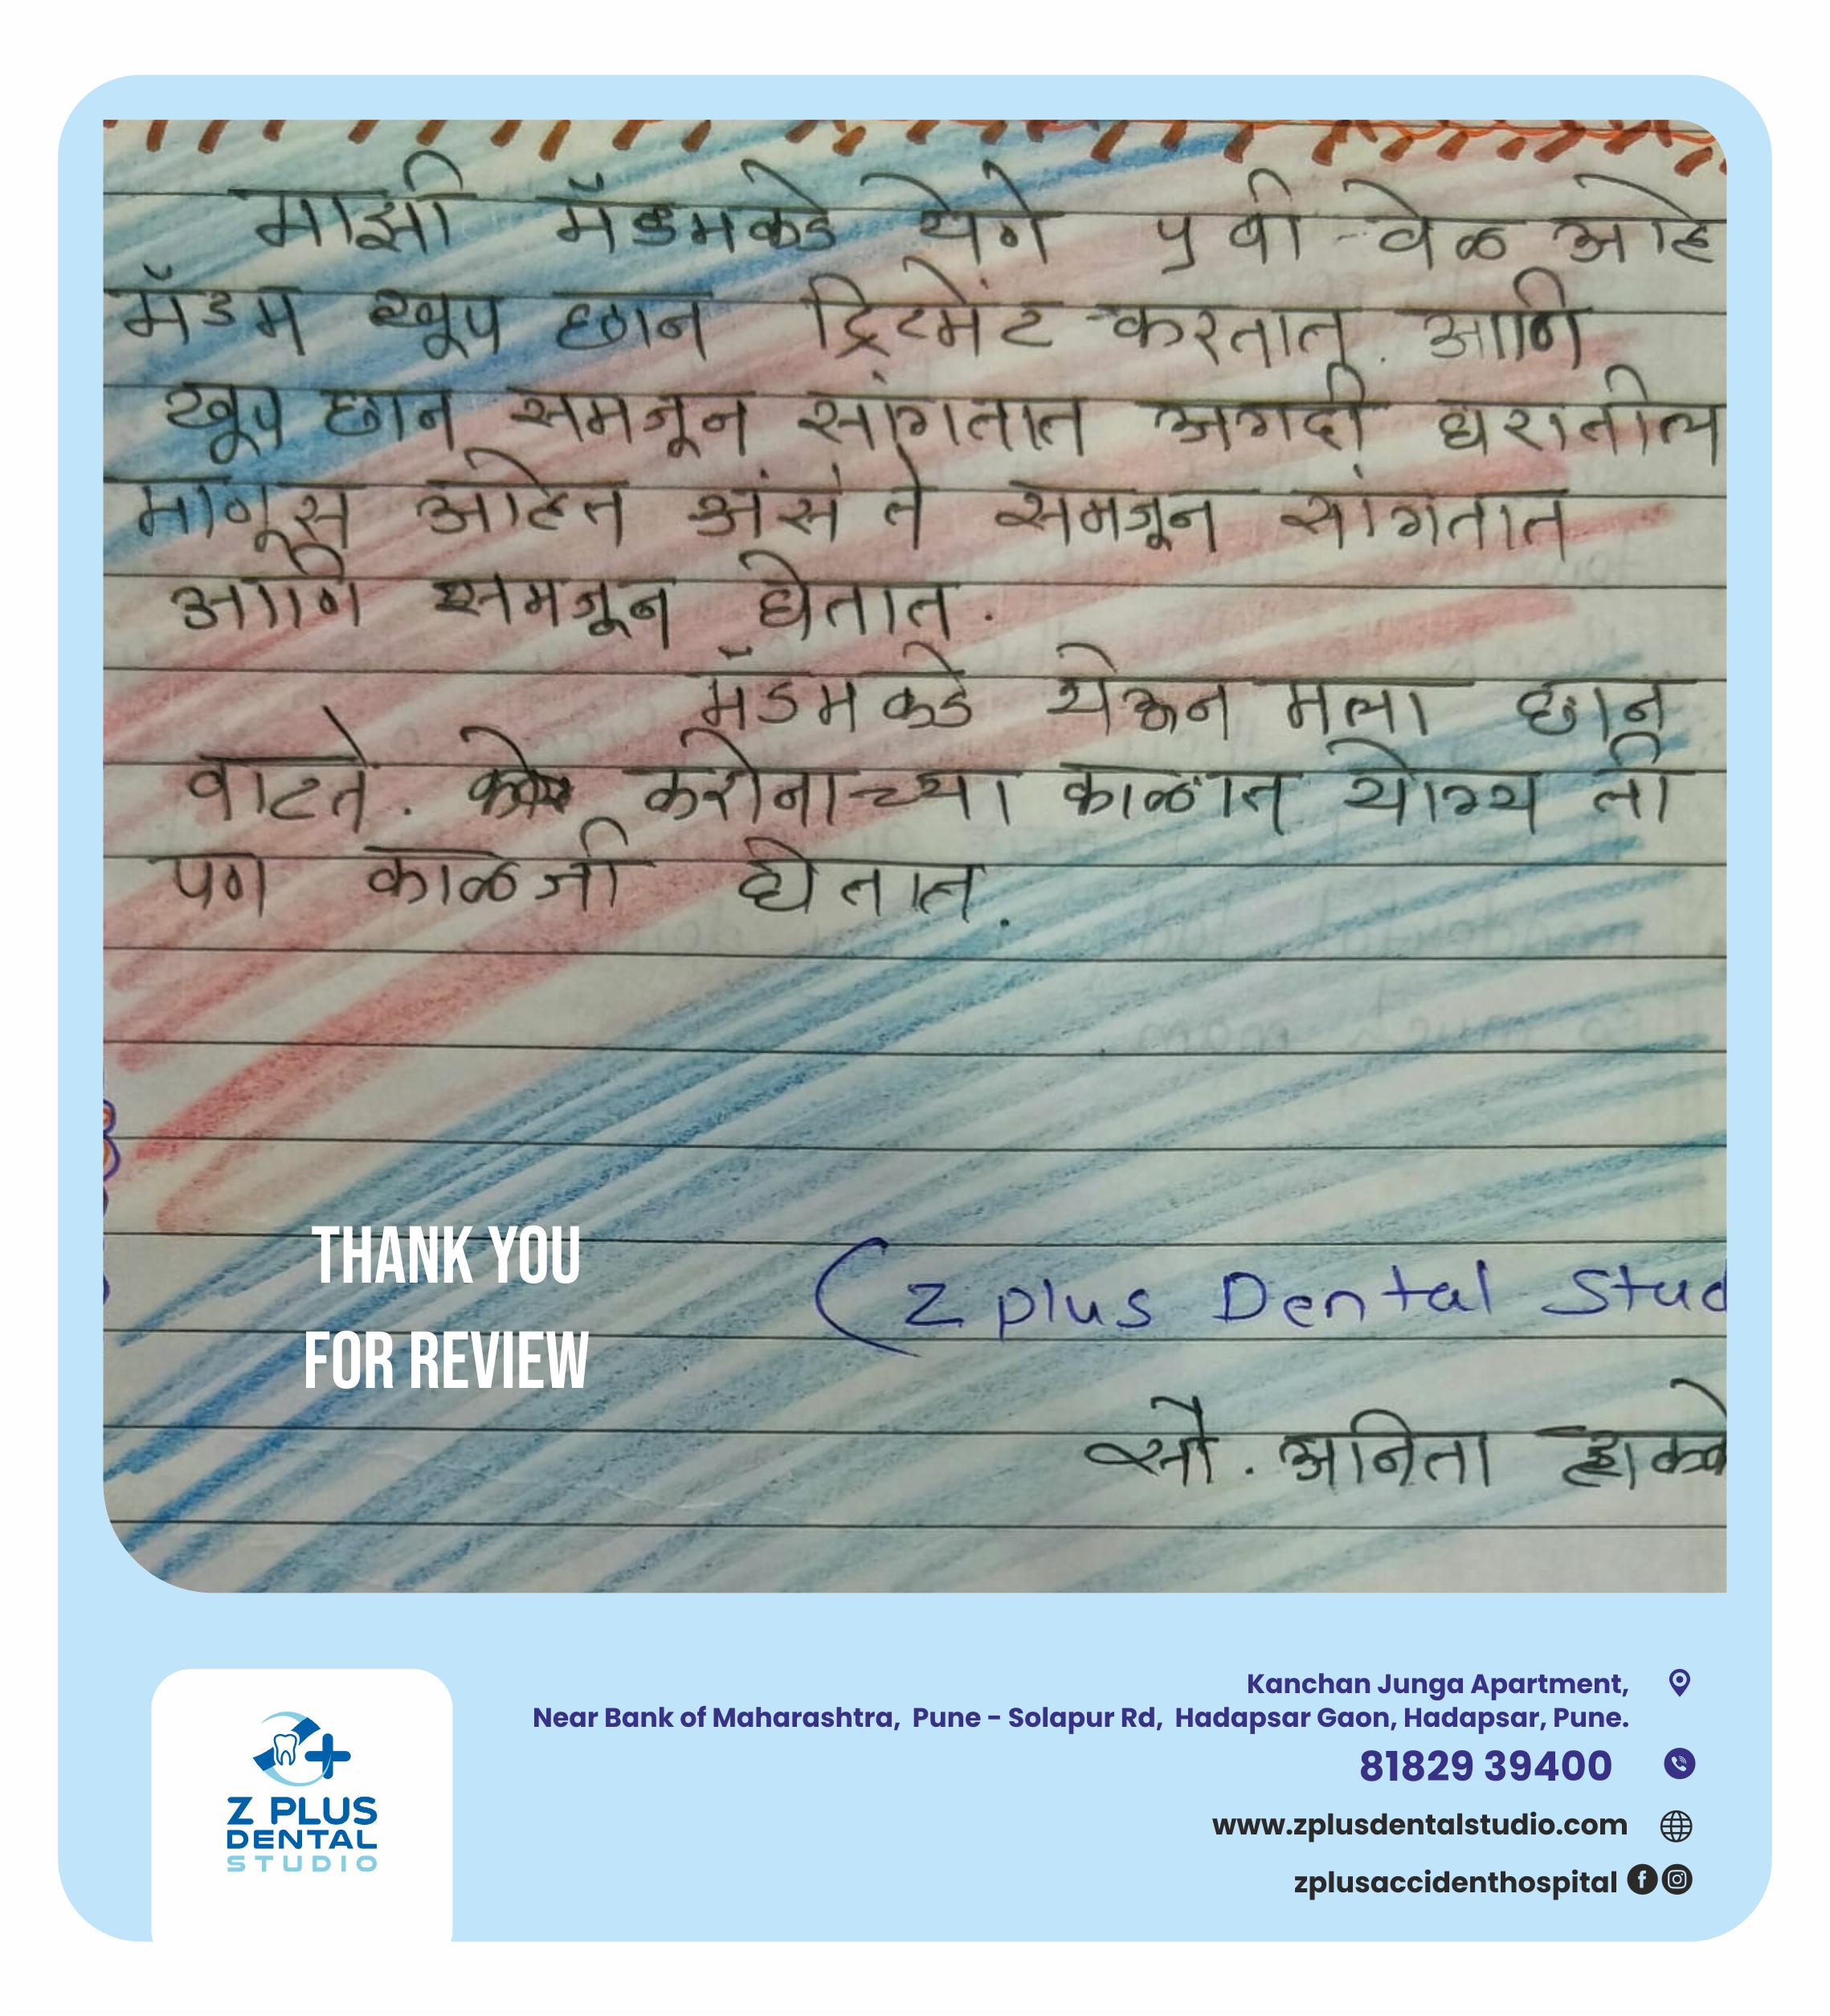 माझी मॅडमकडे येणे पु वी वेळ आहे
मॅडम खूप छान ट्रिटमेंट करतात. आणि
खूप छान समजून सांगतात अगदी घरातील
माणूस आहेत अंसे ते समजून सांगतात
आणि समजून घेतात.
मॅडमकडे येऊन मला छान
वाटते. करोनाच्या काळात योग्य ती
पण काळजी घेतात.
THANK YOU
FOR REVIEW
(Z plus Dental Stud
सौ. अनिता
Z PLUS
DENTAL
STUDIO
Kanchan Junga Apartment,
Near Bank of Maharashtra, Pune - Solapur Rd, Hadapsar Gaon, Hadapsar, Pune.
81829 39400
www.zplusdentalstudio.com
zplusaccidenthospital